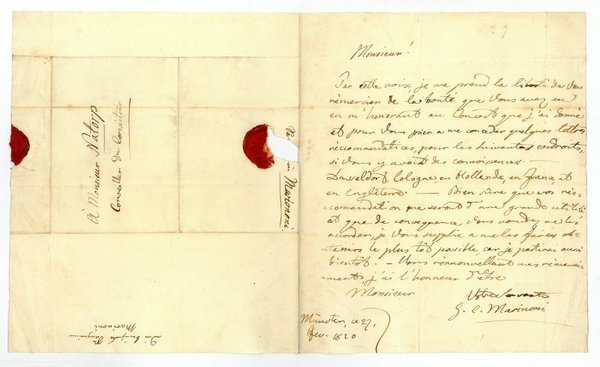 À Monsieur Natorp
Conseiller du Consistoire
Marinoni
Marinoni
Monsieur!
Par cette voix, je me prend la liberté de vous
remercier de la bonté que vous avez eu
en m'honorant au Concert que j'ai donné
et pour vous prier a me conceder quelques lettres
recomandatices, pour les suivantes endroits,
si vous y avait des connoissences
Dusseldorf Cologne en Hollande, en france, et
en Engleterre — Bien sûre que vos rec-
comandation me seront d'une grande utilité
et que de consequence vous voudrez me les
accorder, je vous suplie a me les faires ob-
tenire le plus tôt possible, car je partirai aussi
bientôt. — Vous rennouvellant mes remerci-
ments, j'ai l'honneur d'etre
Monsieur
Votre Servante
G. C. Marinoni
Münster, ce 27,
fev. 1820